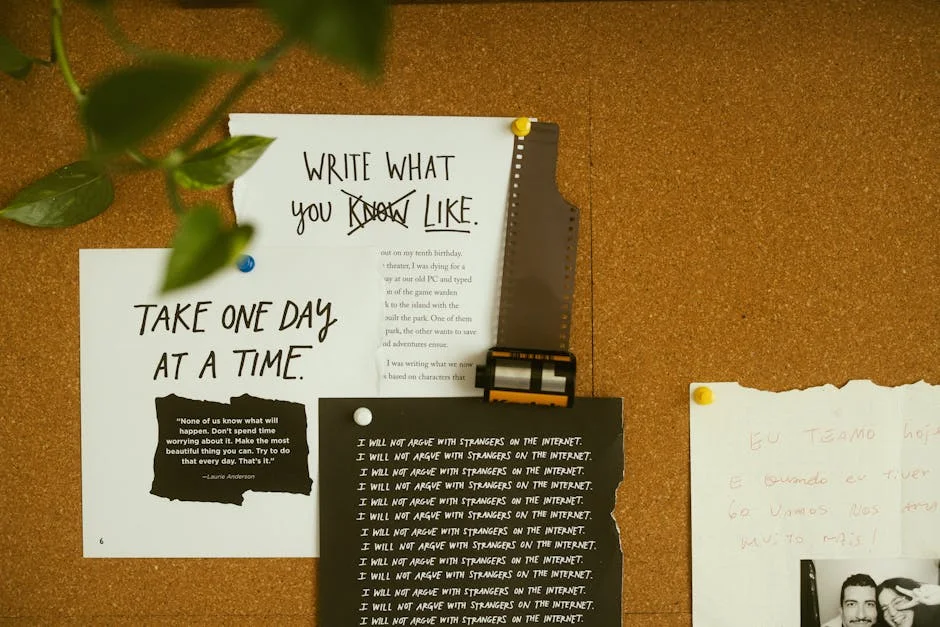 WRITE WHAT
YOU KNOW LIKE.
out on my tenth birthday.
theater, I was dying for a
at our old PC and typed
of the game warden
to the island with the
built the park. One of them
park, the other wants to save
adventures ensue.
I was writing what we now
based on characters that
TAKE ONE DAY
AT A TIME.
“None of us know what will
happen. Don’t spend time
worrying about it. Make the
most beautiful thing you can. Try to
do that every day. That’s it.”
—Laurie Anderson
6
I WILL NOT ARGUE WITH STRANGERS ON THE INTERNET.
I WILL NOT ARGUE WITH STRANGERS ON THE INTERNET.
I WILL NOT ARGUE WITH STRANGERS ON THE INTERNET.
I WILL NOT ARGUE WITH STRANGERS ON THE INTERNET.
I WILL NOT ARGUE WITH STRANGERS ON THE INTERNET.
I WILL NOT ARGUE WITH STRANGERS ON THE INTERNET.
I WILL NOT ARGUE WITH STRANGERS ON THE INTERNET.
I WILL NOT ARGUE WITH STRANGERS ON THE INTERNET.
I WILL NOT ARGUE WITH STRANGERS ON THE INTERNET.
I WILL NOT ARGUE WITH STRANGERS ON THE INTERNET.
I WILL NOT ARGUE WITH STRANGERS ON THE INTERNET.
I WILL NOT ARGUE WITH STRANGERS ON THE INTERNET.
I WILL NOT ARGUE WITH STRANGERS ON THE INTERNET.
EU TEAMO
E Quando eu tiver
60 Vamos nos
MUITO MAIS!